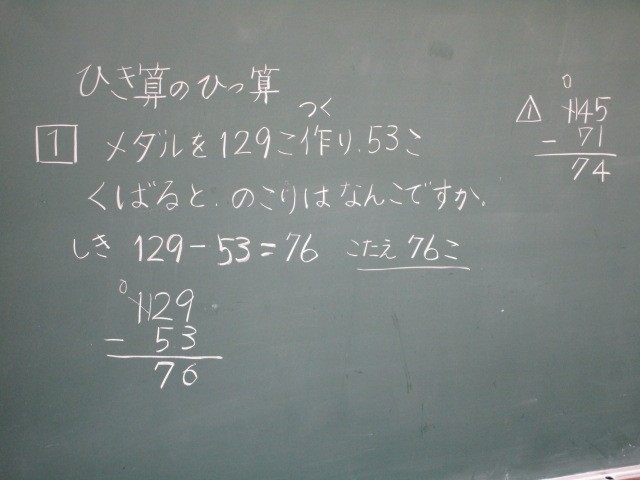 ひき算のひっ算
つく
1 メダルを129こ作り、53こ
くばると、のこりはなんこですか。
しき 129-53=76 こたえ 76こ
0
129
- 53
76
0
1 145
- 71
74